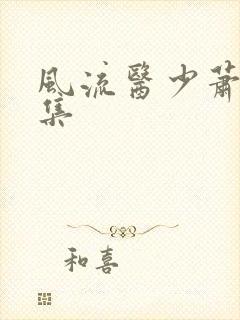 風流醫少蕭
集
和喜